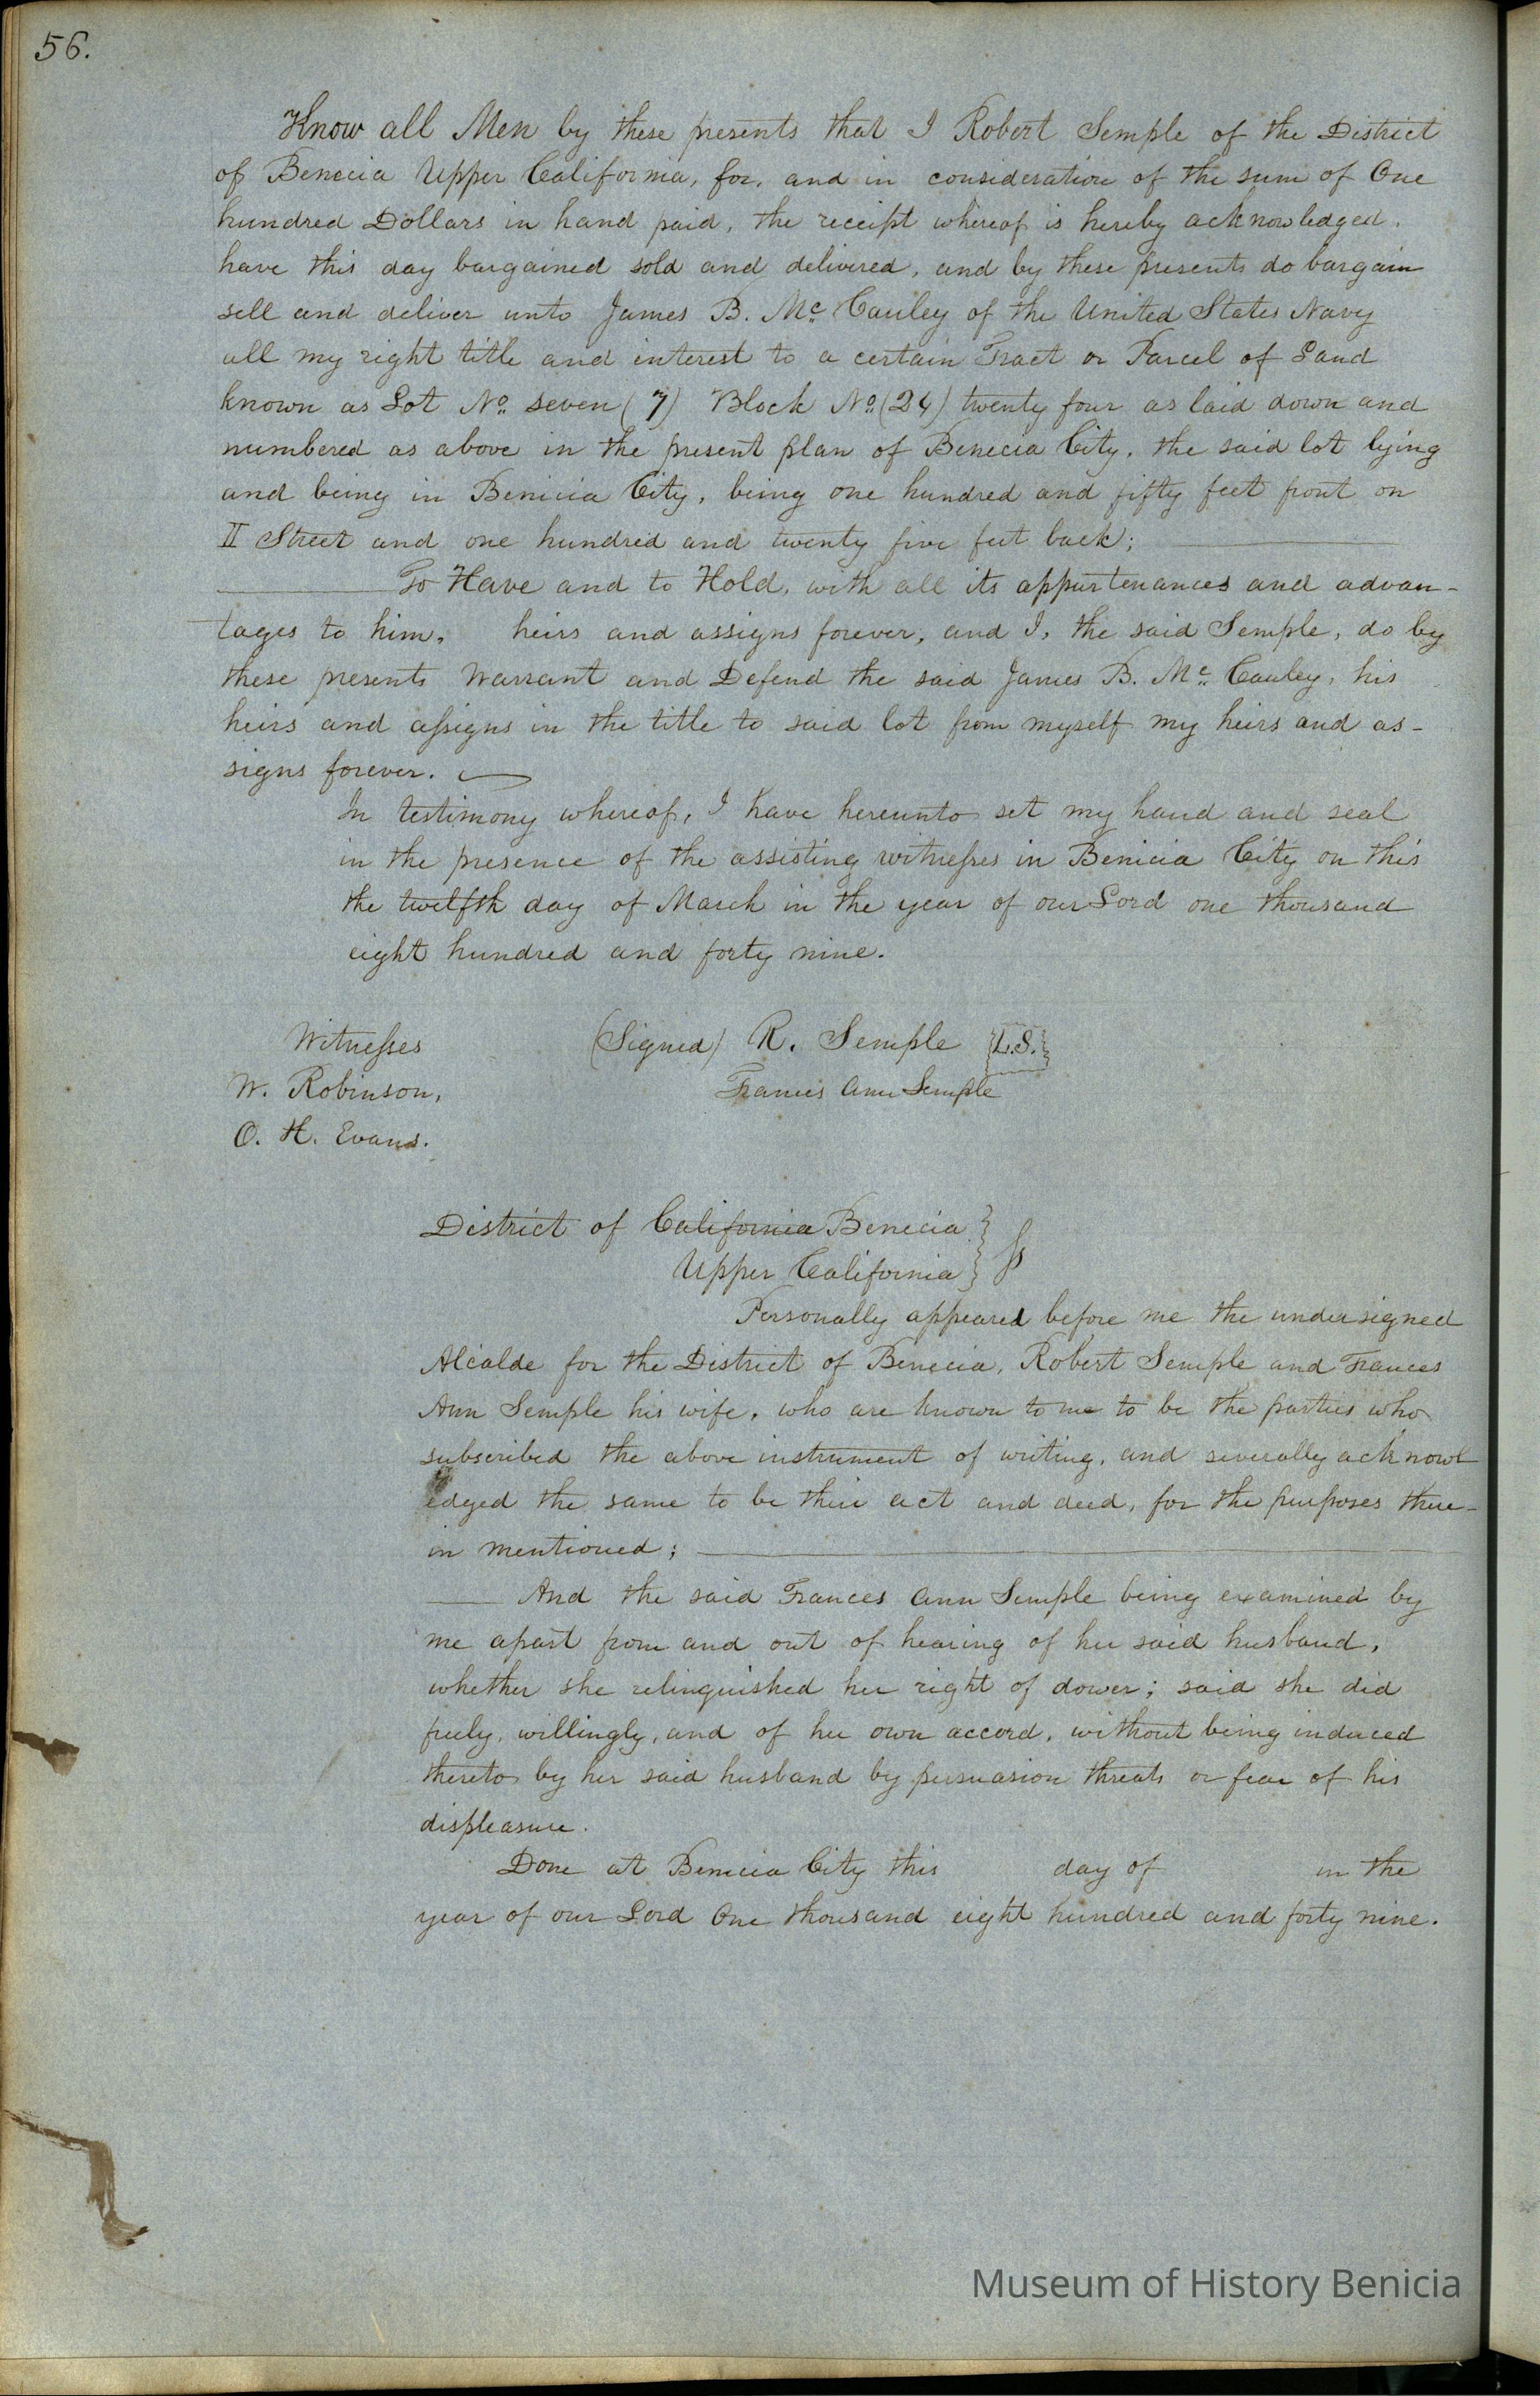 56.
Know all Men by these presents that I Robert Semple of the District
of Benecia Upper California, for, and in consideration of the sum of One
hundred Dollars in hand paid, the receipt whereof is hereby acknowledged,
have this day bargained sold and delivered, and by these presents do bargain
sell and deliver unto James B. Mc Cauley of the United States Navy
all my right title and interest to a certain Tract or Parcel of Land
known as Lot No. seven (7) Block No. (24) twenty four as laid down and
numbered as above in the present plan of Benecia City, the said lot lying
and being in Benicia City, being one hundred and fifty feet front on
II Street and one hundred and twenty five feet back;
To Have and to Hold, with all its appurtenances and advan-
tages to him, heirs and assigns forever, and I, the said Semple, do by
these presents Warrant and Defend the said James B. Mc Cauley, his
heirs and assigns in the title to said lot from myself my heirs and as-
signs forever.
In testimony whereof, I have hereunto set my hand and seal
in the presence of the assisting witnesses in Benicia City on this
the twelfth day of March in the year of our Lord one thousand
eight hundred and forty nine.
Witnesses (Signed) R. Semple {L.S.}
W. Robinson, Frances Ann Semple
O. H. Evans.
District of California Benecia }
Upper California } ss
Personally appeared before me the undersigned
Alcalde for the District of Benecia, Robert Semple and Frances
Ann Semple his wife, who are known to me to be the parties who
subscribed the above instrument of writing, and severally acknowl
edged the same to be their act and deed, for the purposes there-
in mentioned;
And the said Frances Ann Semple being examined by
me apart from and out of hearing of her said husband,
whether she relinquished her right of dower; said she did
freely, willingly, and of her own accord, without being induced
thereto by her said husband by persuasion threats or fear of his
displeasure.
Done at Benicia City this day of in the
year of our Lord One thousand eight hundred and forty nine.
Museum of History Benicia